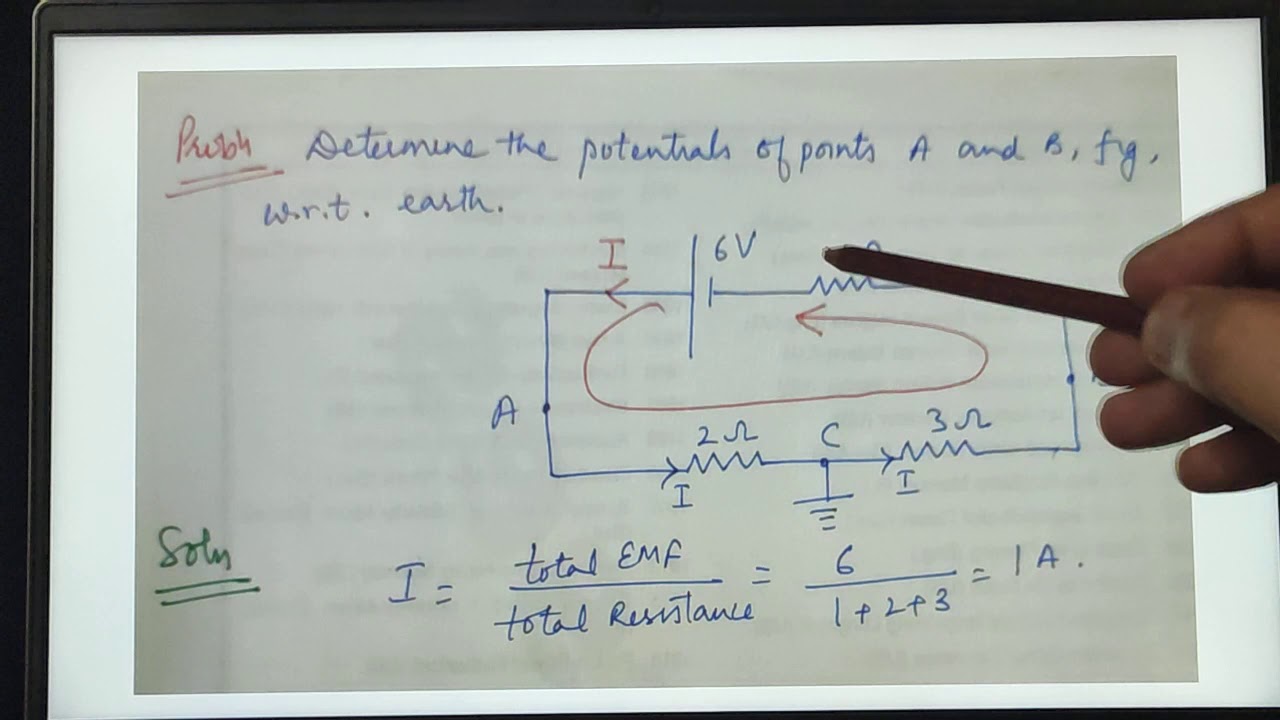 Probn Determine the potentials of points A and B, fig,
w.r.t. earth.
I 6V Ω
A 2Ω C 3Ω
I I
Soln I = total EMF / total Resistance = 6 / 1+2+3 = 1 A.